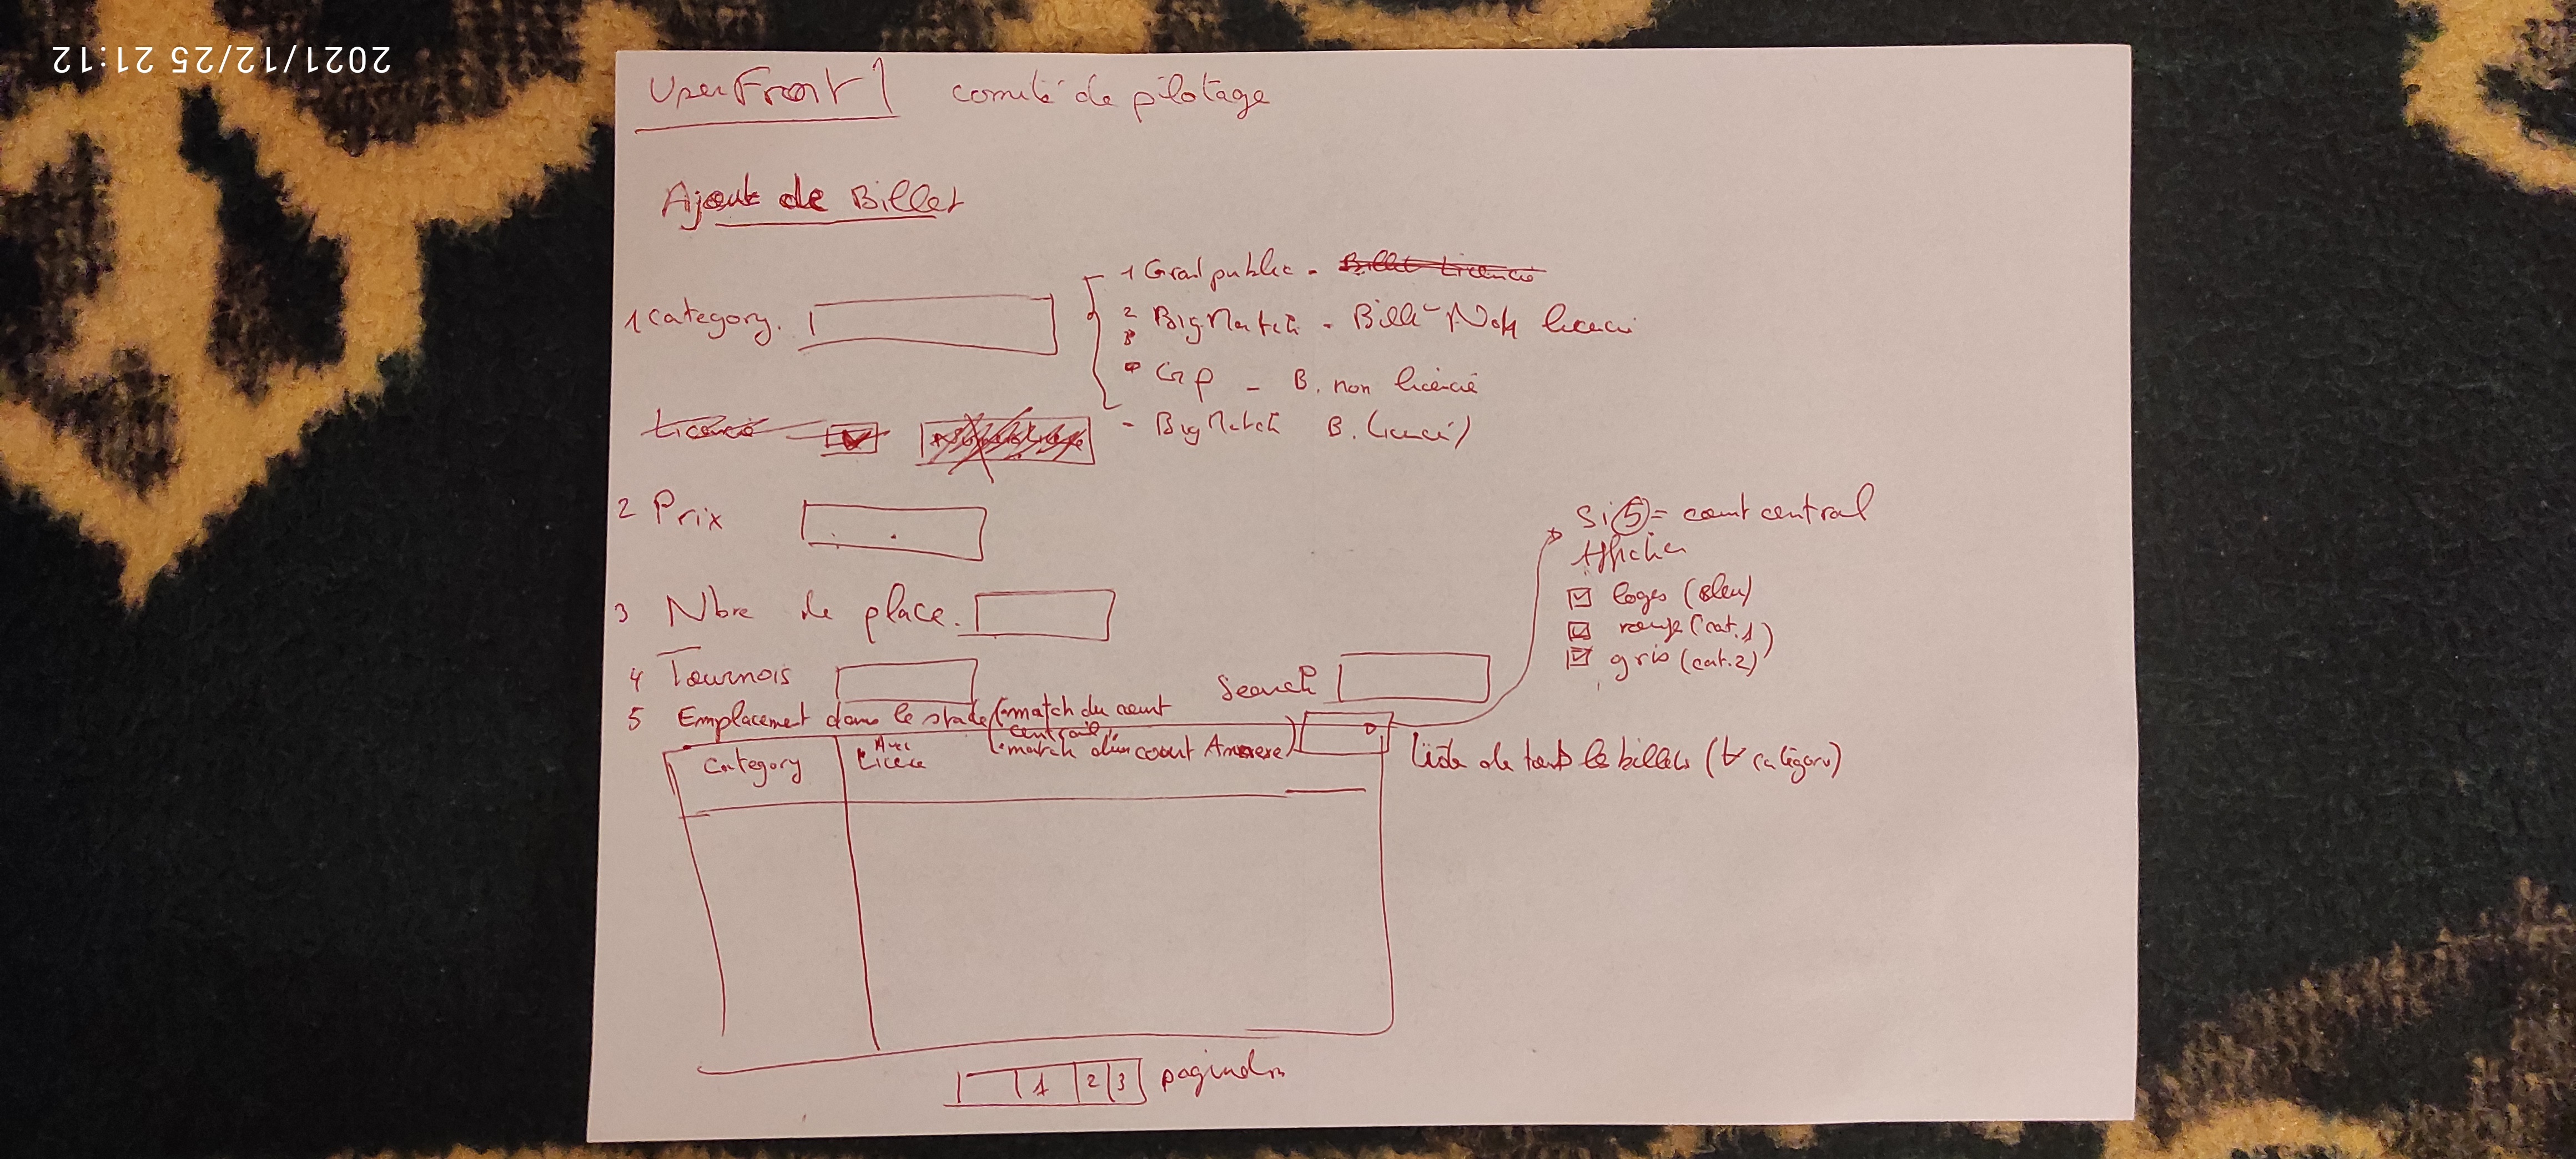 2021/12/25 21:12
User Front 1 comité de pilotage
Ajout de Billet
1 Category.
1 Grand public - Billet Licencié
2 Big Match - Billet Non licencié
3
GP - B. non licencié
- Big Match B. licencié
Licencié
2 Prix
3 Nbre de place.
4 Tournois
Search
5 Emplacement dans le stade (- match du court central
- match d'un court Annexe)
Si 5 = court central
Afficher
loges (bleu)
rouge (cat. 1)
gris (cat. 2)
Category
Avec Licence
Liste de tous les billets (∀ catégorie)
1 2 3 pagination